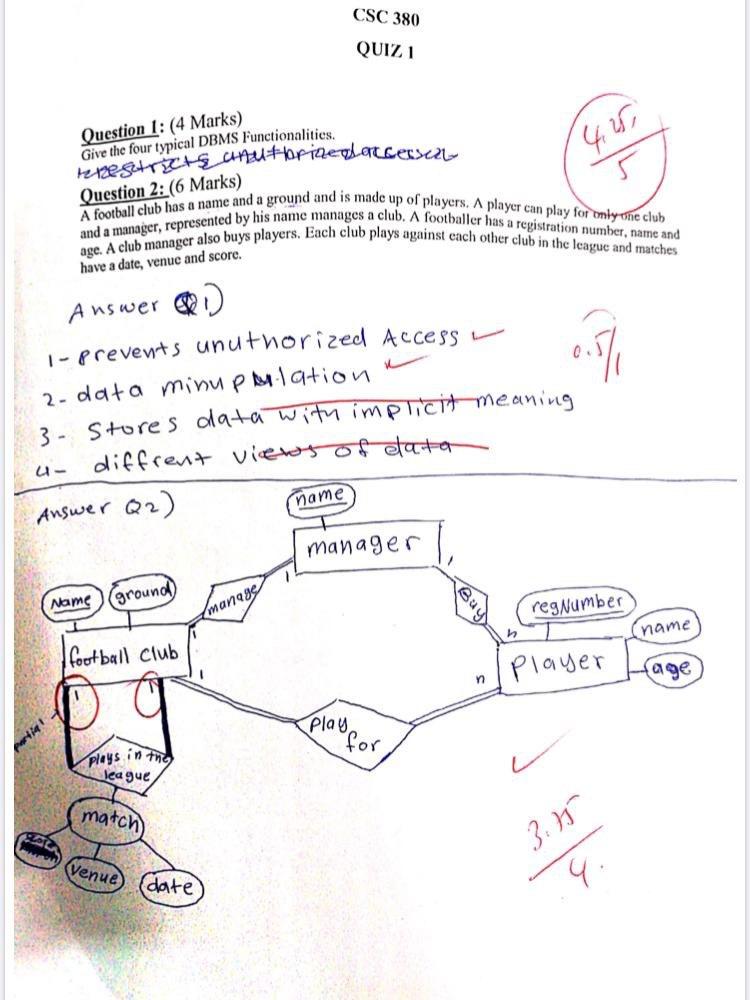 CSC 380
QUIZ 1
Question 1: (4 Marks)
Give the four typical DBMS Functionalities.
unauthorized access
4.25
5
Question 2: (6 Marks)
A football club has a name and a ground and is made up of players. A player can play for only one club
and a manager, represented by his name manages a club. A footballer has a registration number, name and
age. A club manager also buys players. Each club plays against each other club in the league and matches
have a date, venue and score.
Answer Q1)
1- prevents unuthorized Access
0.5/1
2- data minupulation
3- Stores data with implicit meaning
4- diffrent views of data
Answer Q2)
name
manager
1
1
Name
ground
manage
Buy
regNumber
name
football club
1
n
player
age
1
n
1
1
partial
play for
plays in the
league
match
3.75
4
venue
date